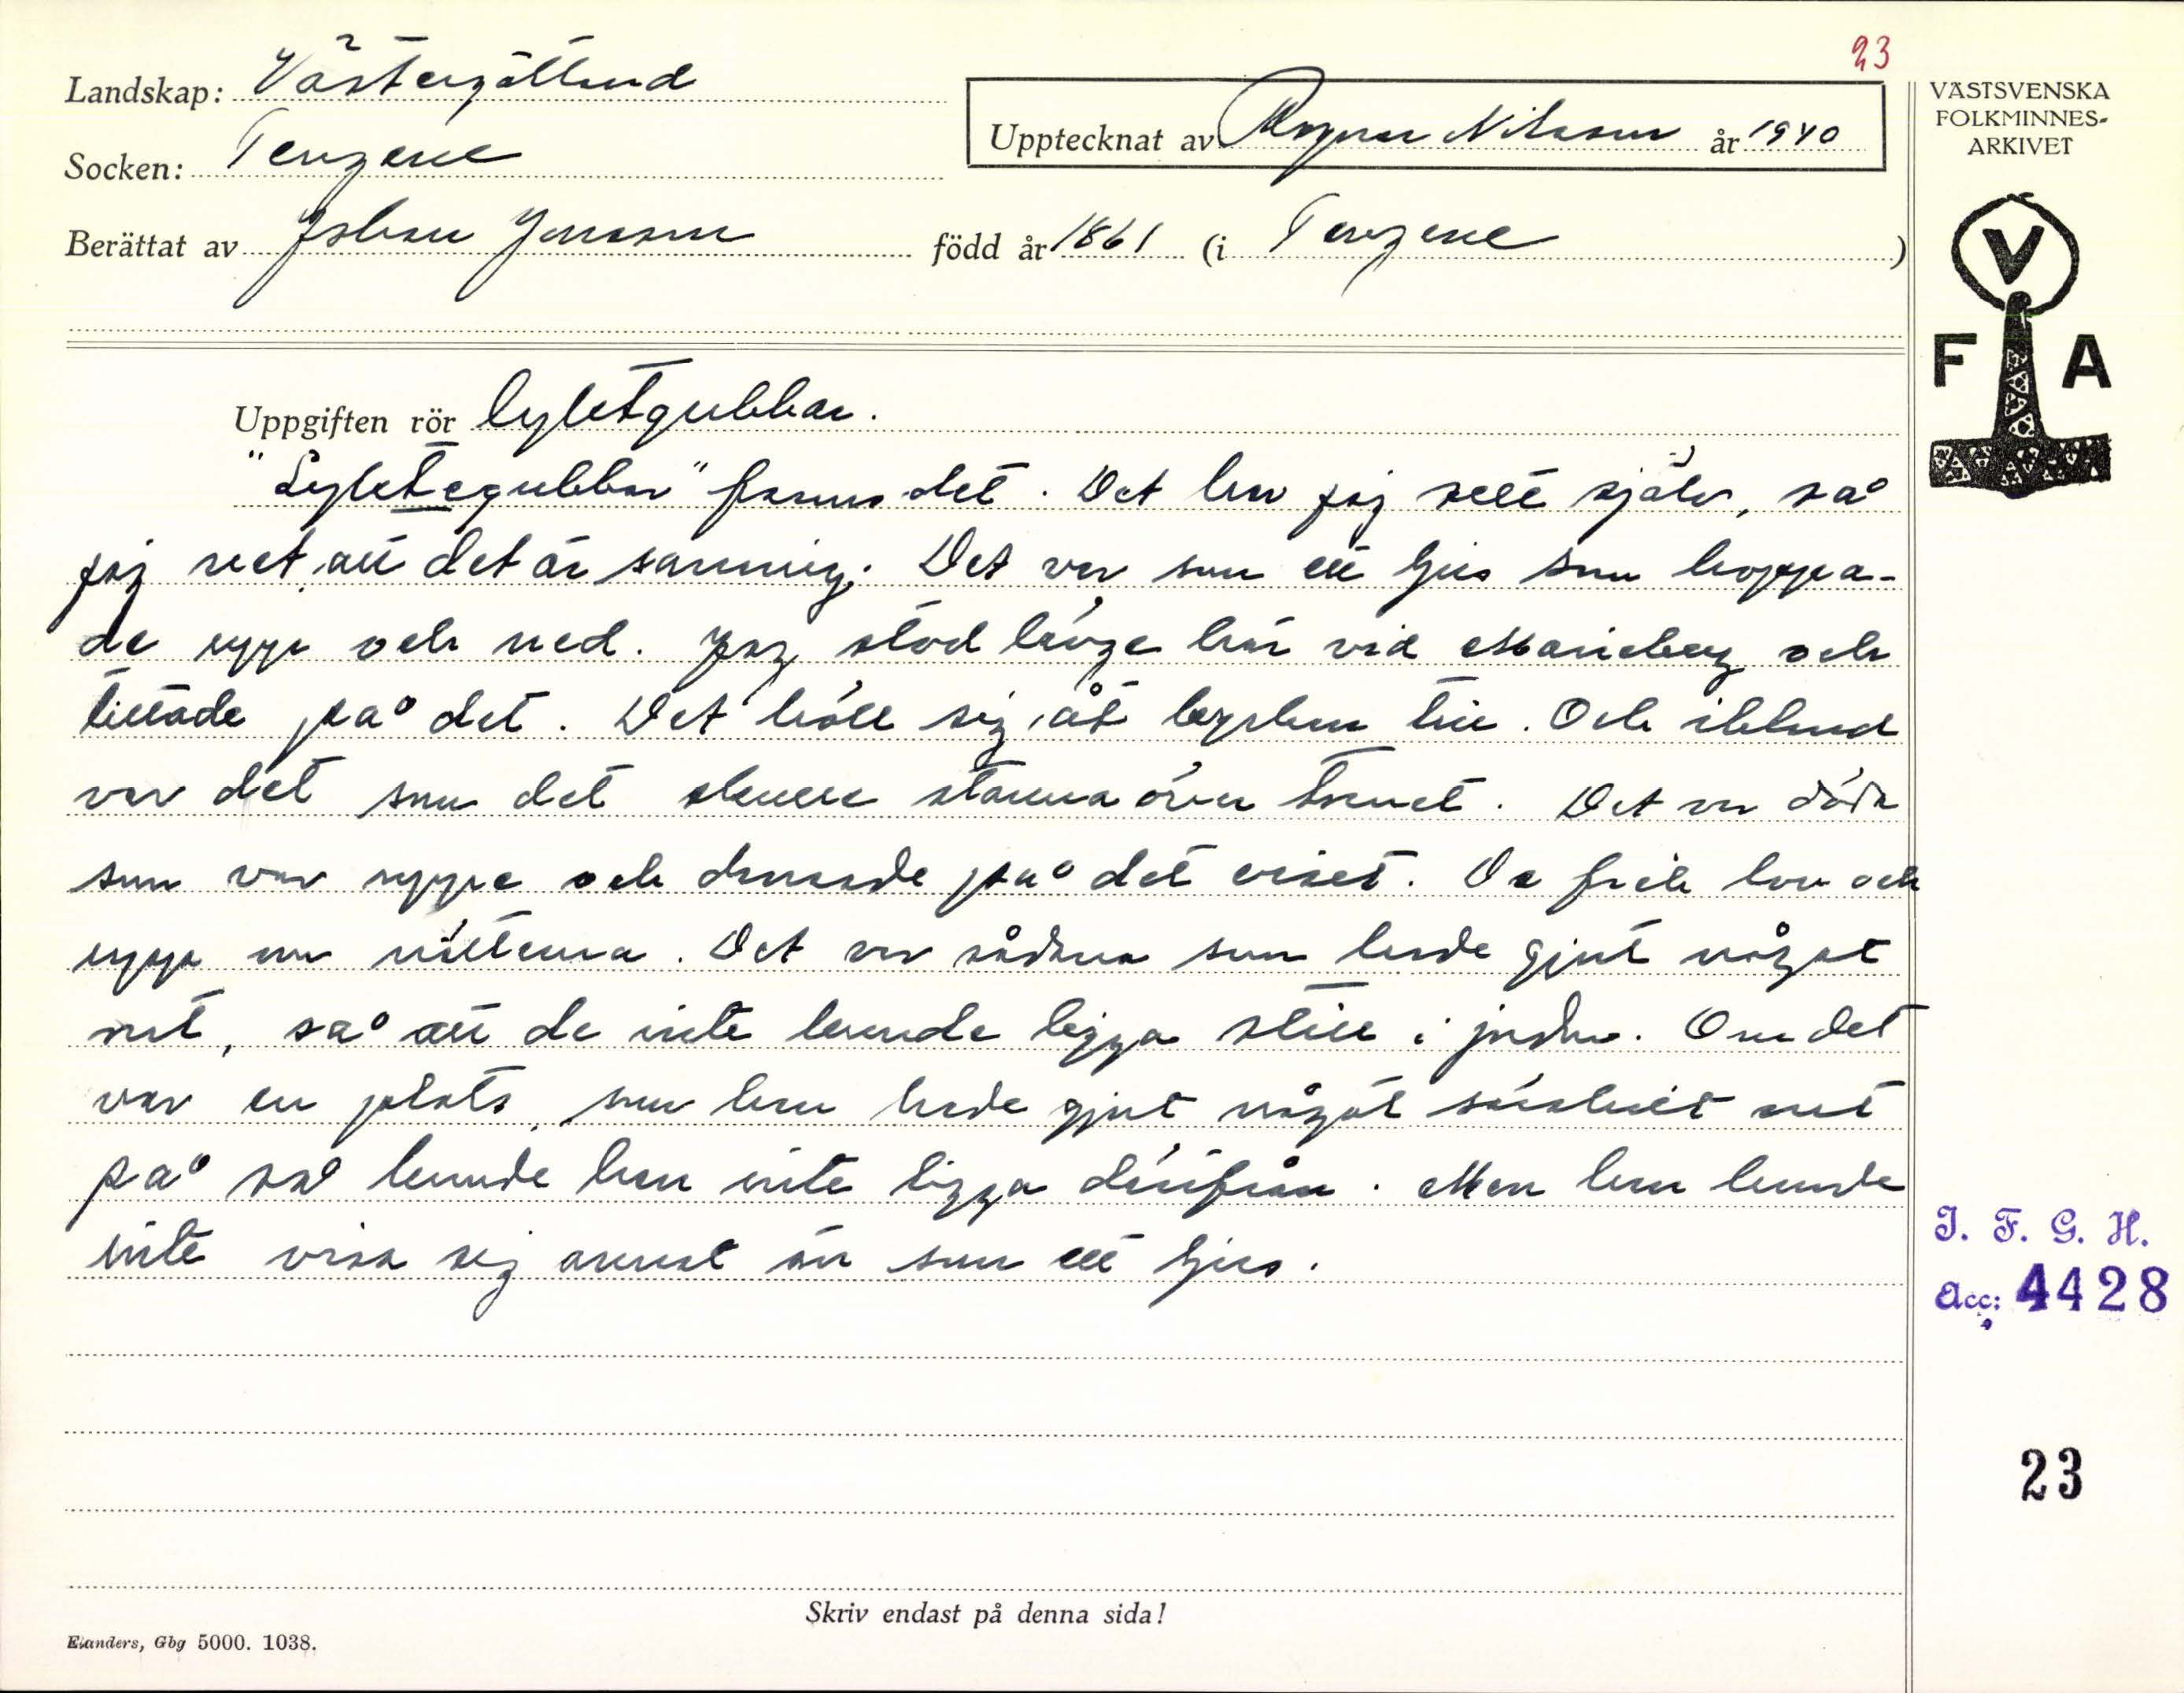 23
Landskap: Västergötland
Upptecknat av Ragnar Nilsson år 1940
VÄSTSVENSKA
FOLKMINNES-
ARKIVET
Socken: Tengene
Berättat av Johan Jonsson född år 1861 (i Tengene)
V
F A
Uppgiften rör lyktgubbar.
"Lyktegubbar" fanns det. Det har jag sett själv, så
jag vet, att det är sanning. Det var som ett ljus som hoppa-
de upp och ned. Jag stod länge här vid Marieberg och
tittade på det. Det höll sig åt kyrkan till. Och ibland
var det som det skulle stanna över tornet. Det var döda
som var uppe och dansade på det viset. De fick lov och
upp om nätterna. Det var sådana som hade gjort något
ont, så att de inte kunde ligga still i jorden. Om det
var en plats, som han hade gjort något särskilt ont
på så kunde han inte ligga därifrån. Men han kunde
inte visa sig annat än som ett ljus.
I. F. G. H.
Acc: 4428
23
Skriv endast på denna sida!
Elanders, Gbg 5000. 1038.